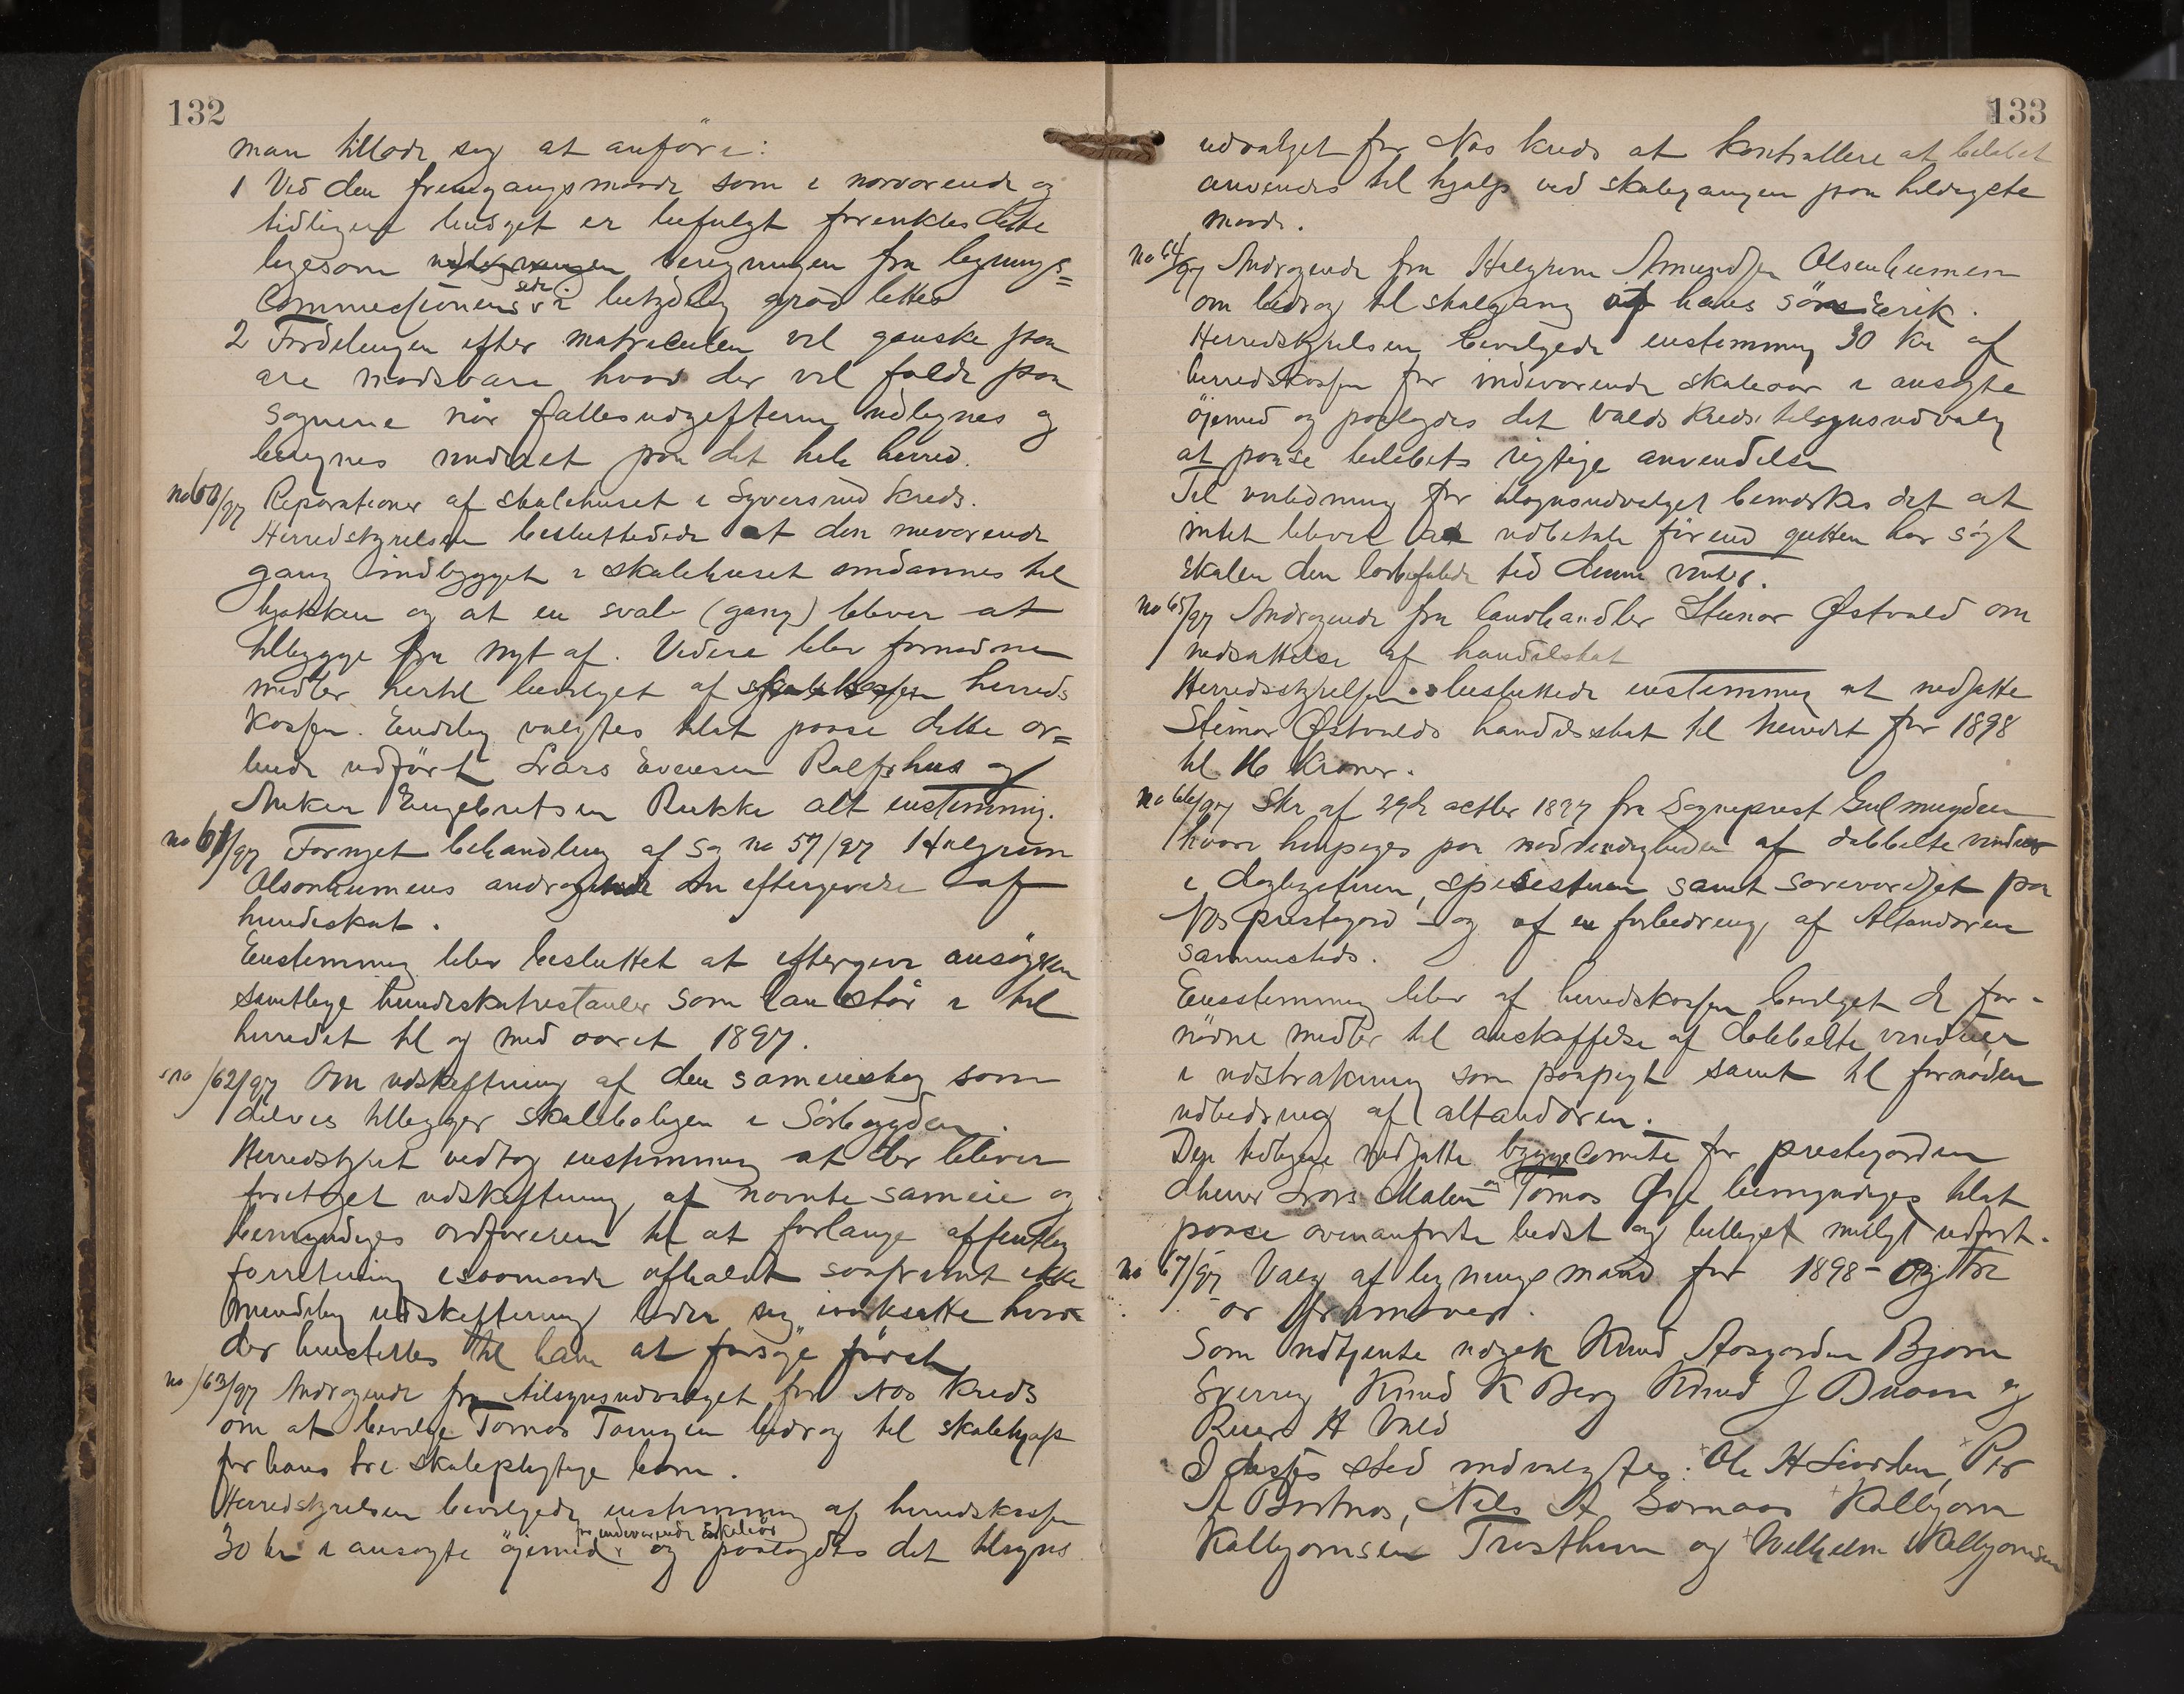 132
man tillade sig at anføre:
1 Ved den fremgangsmaade som i nærværende og
tidligere budget er befulgt forenkles dette
ligesom beregningen fra lignings=
Commissionens side i betydelig grad lettes
2 Fordelingen efter matriculen vil ganske paa
øre modsvare hvad der vil falde paa
sognene når fællesudgifterne udlignes og
beregnes under et paa det hele herred.
no 60/97 Reparationer af skolehuset i Syversrud kreds.
Herredstyrelsen besluttedede at den nuværende
gang indbygget i skolehuset omdannes til
kjøkken og at en sval (gang) bliver at
tilbygge fra nyt af. Videre blev fornødne
midler hertil bevilget af herreds
kassen. Endelig valgtes til at paase dette ar=
beide udført Lars Evensen Rolfshus og
Anken Engebretsen Rukke alt enstemmig.
no 61/97 Fornyet behandling af sag no 57/97 Halgrim
Olsenhumens andragende om eftergivelse af
hundeskat.
Enstemmig blev besluttet at eftergive ansøgeren
samtlige hundeskatrestancer som han står i til
herredet til og med aaret 1897.
no 62/97 Om udskiftning af den sameieskog som
delvis tilligger skoleboligen i Sørbygden.
Herredstyret vedtog enstemmig at der bliver
foretaget udskiftning af nævnte sameie og
bemyndiges ordføreren til at forlange offentlig
forretning isaamaade afholdt saafremt ikke
mindelig udskiftning lader sig iverksætte hvor
der henstilles til ham at forsøge først
no 63/97 Andragende fra tilsynsudvalget for Nes kreds
om at bevilge Tomas bidrag til skolehjælp
for hans tre skolepligtige børn.
Herredstyrelsen bevilgede enstemmig af herredskassen
for indeværende skoleår
30 kr i ansøgte øjemed og paalagdes det tilsyns
133
udvalget for Nes kreds at kontrollere at beløbet
anvendes til hjælp ved skolegangen paa heldigste
maade.
no 64/97 Andragende fra Halgrim Amundsen Olsenhumen
om bidrag til skolegang af hans søn Eerik.
Herredstyrelsen bevilgede enstemmig 30 kr af
herredskassen for indeværende skoleaar i ansøgte
øjemed og paalagdes det Valds kreds tilsynsudvalg
at paase beløbets rigtige anvendelse
Til veiledning for tilsynsudvalget bemærkes det at
intet bliver at udbetale førend gutten har søgt
skolen den lovbefalede tid denne vinter.
no 65/97 Andragende fra landhandler Steinar Østvold om
nedsættelse af handelskat
Herredsstyrelsen besluttede enstemmig at nedsætte
Steinar Østvolds handelsskat til herredet for 1898
til 16 kroner.
no 66/97 Skr af 29de octbr 1897 fra Sogneprest Gulmugden
hvori henpeges paa nødvendigheden af dobbelte vinduer
i dagligstuen, spisestuen samt soveværelset paa
Nes prestegård - og af en forbedring af Altandøren
sammesteds.
Eensstemmig blev af herredskassen bevilget de for-
nødne midler til anskaffelse af dobbelte vinduer
i udstrækning som paapegt samt til fornøden
udbedring af altandøren.
Den tidligere nedsatte byggecomite for prestegården
dhrr Lars Malen og Tomas bemyndiges til at
paase ovenanførte bedst og billigst muligt udført.
no 67/97 Valg af ligningsmænd for 1898 - og tre
år fremover.
Som udtjente udgik Knud Aasgarden Bjørn
Sverrig Knud K Berg Knud J og
A Vold
I disses sted indvalgtes: Ole H Liordten, Per
A Bortnæs, Nils A Garnaas Kolbjørn
Kolbjørnsen Trosthem og Wilhelm Kolbjørnsen